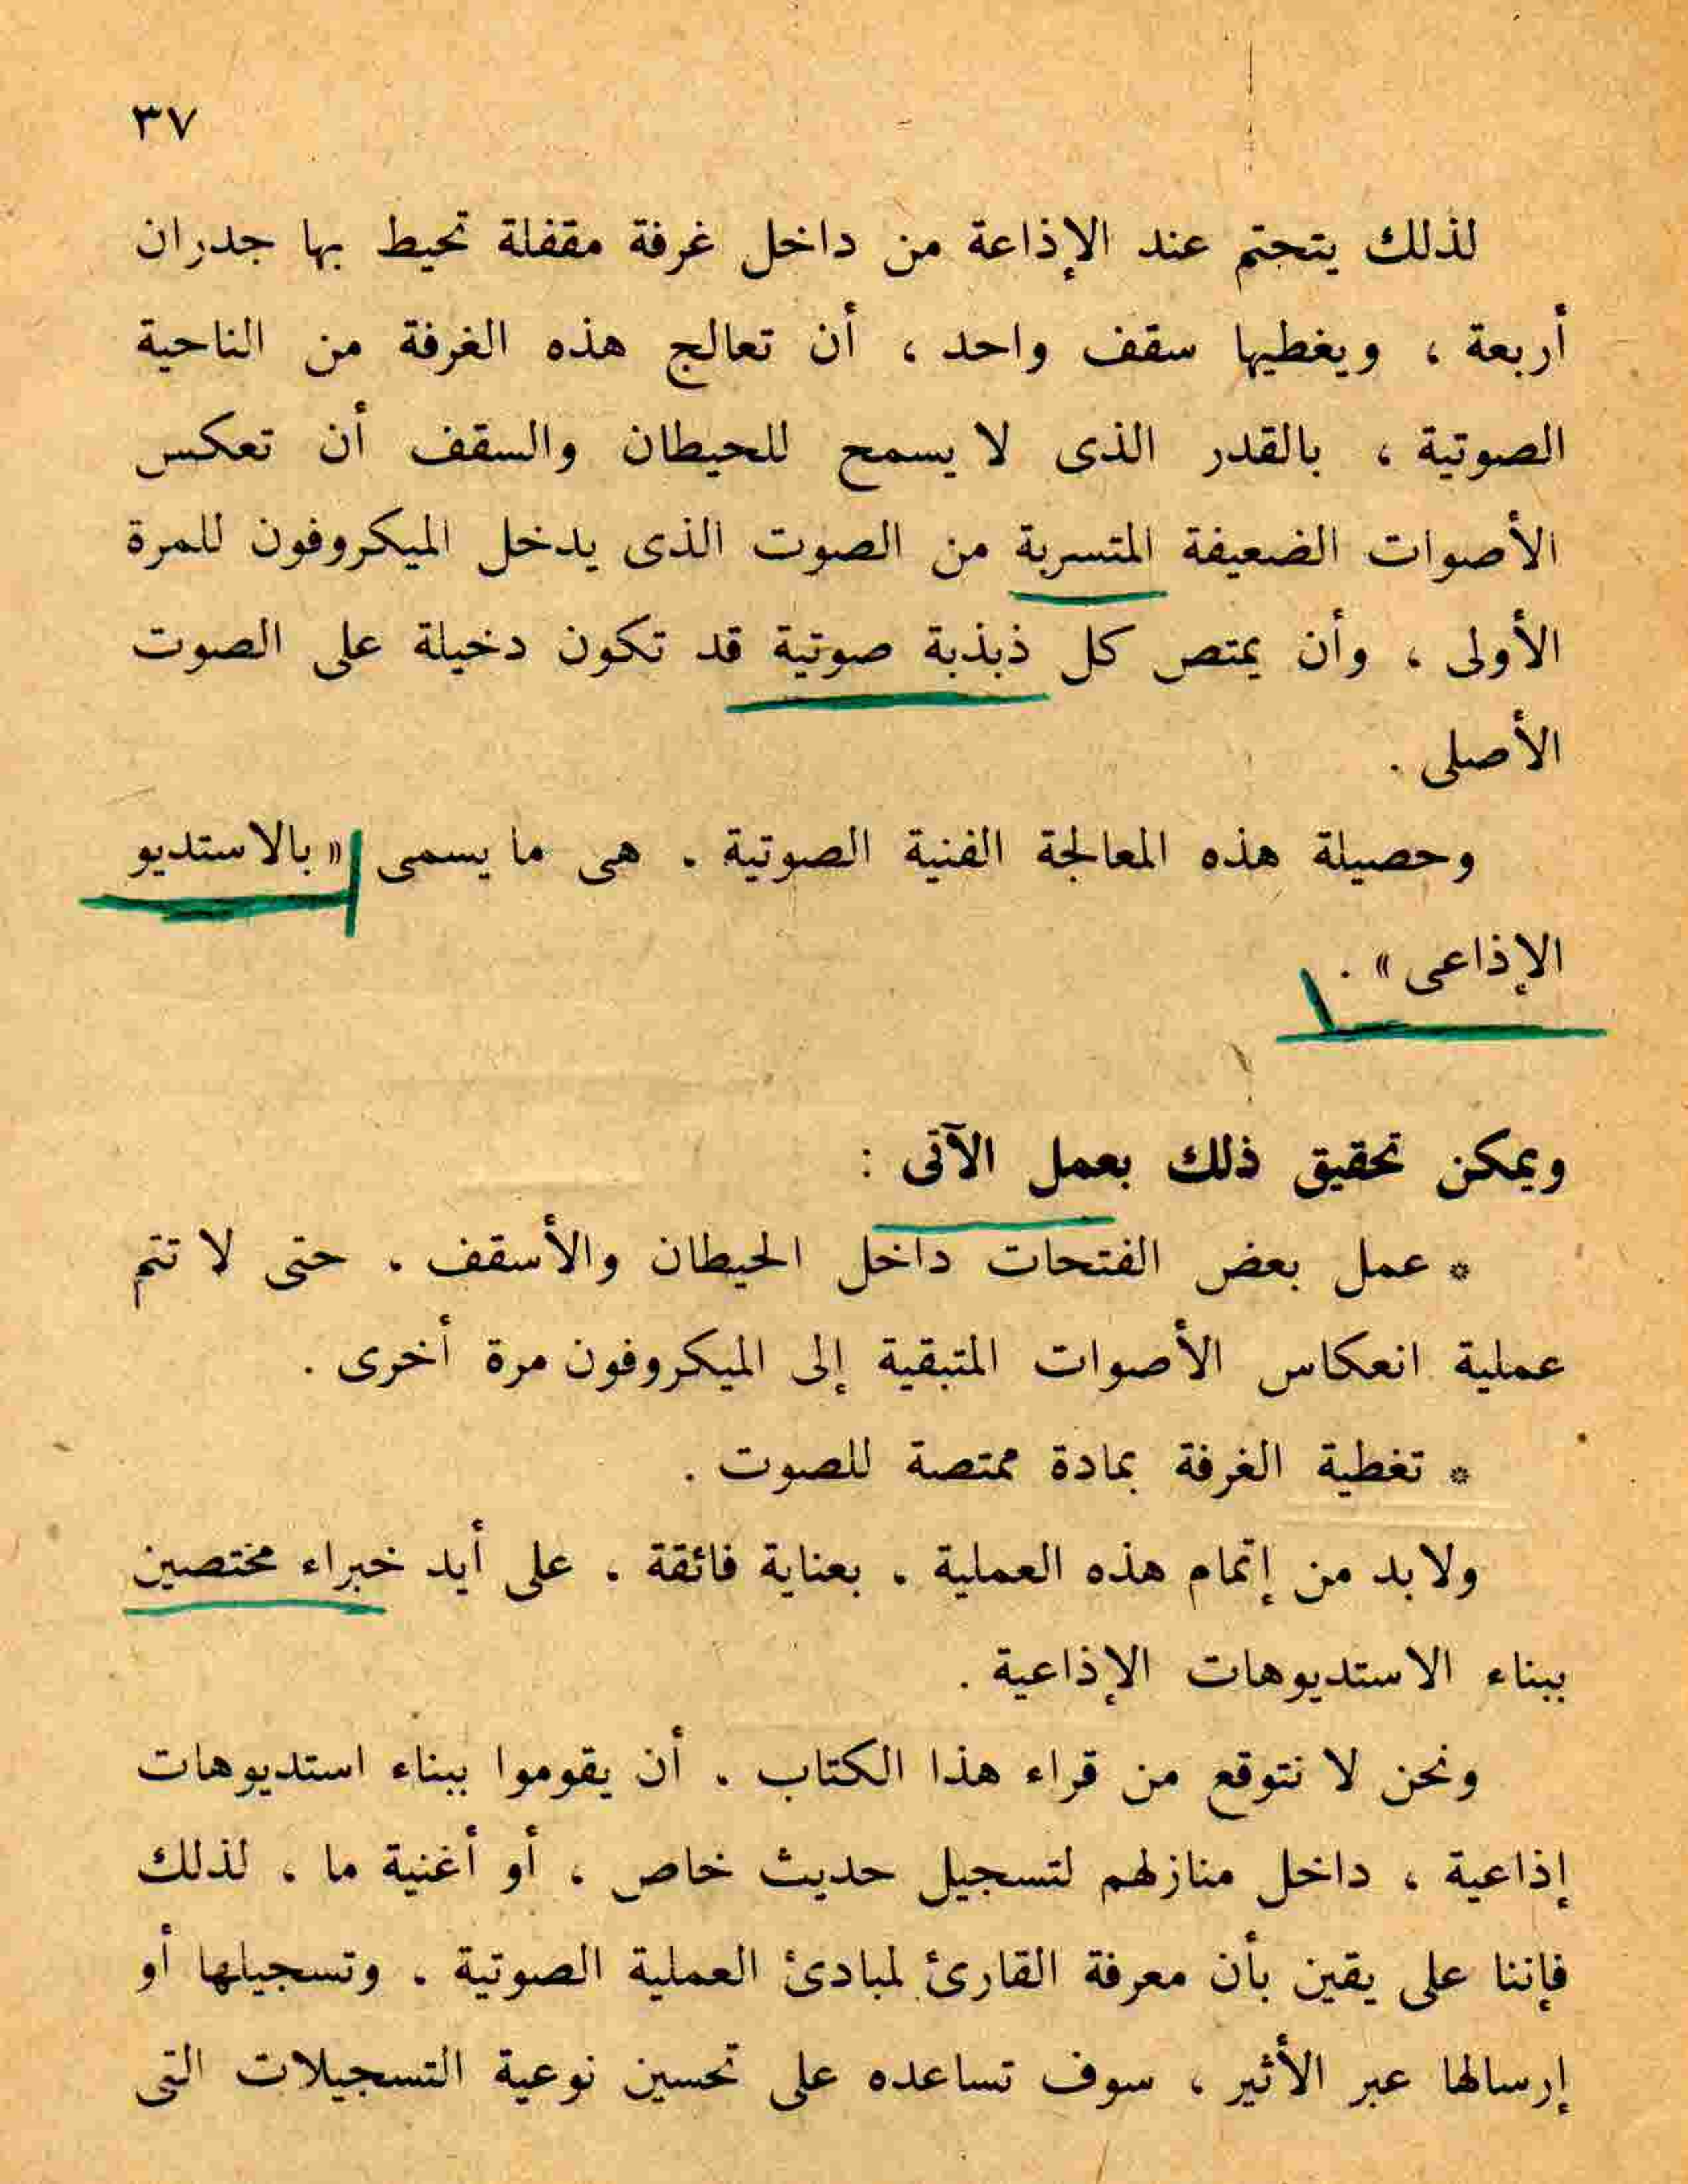 ٣٧
لذلك يتحتم عند الإذاعة من داخل غرفة مقفلة تحيط بها جدران
أربعة ، ويغطيها سقف واحد ، أن تعالج هذه الغرفة من الناحية
الصوتية ، بالقدر الذى لا يسمح للحيطان والسقف أن تعكس
الأصوات الضعيفة المتسربة من الصوت الذى يدخل الميكروفون للمرة
الأولى ، وأن يمتص كل ذبذبة صوتية قد تكون دخيلة على الصوت
الأصلى .
وحصيلة هذه المعالجة الفنية الصوتية . هى ما يسمى « بالاستديو
الإذاعى » .
ويمكن تحقيق ذلك بعمل الآتى :
* عمل بعض الفتحات داخل الحيطان والأسقف . حتى لا تتم
عملية انعكاس الأصوات المتبقية إلى الميكروفون مرة أخرى .
* تغطية الغرفة بمادة ممتصة للصوت .
ولابد من إتمام هذه العملية . بعناية فائقة . على أيد خبراء مختصين
ببناء الاستديوهات الإذاعية .
ونحن لا نتوقع من قراء هذا الكتاب . أن يقوموا ببناء استديوهات
إذاعية ، داخل منازلهم لتسجيل حديث خاص ، أو أغنية ما . لذلك
فإننا على يقين بأن معرفة القارئ لمبادئ العملية الصوتية . وتسجيلها أو
إرسالها عبر الأثير ، سوف تساعده على تحسين نوعية التسجيلات التى